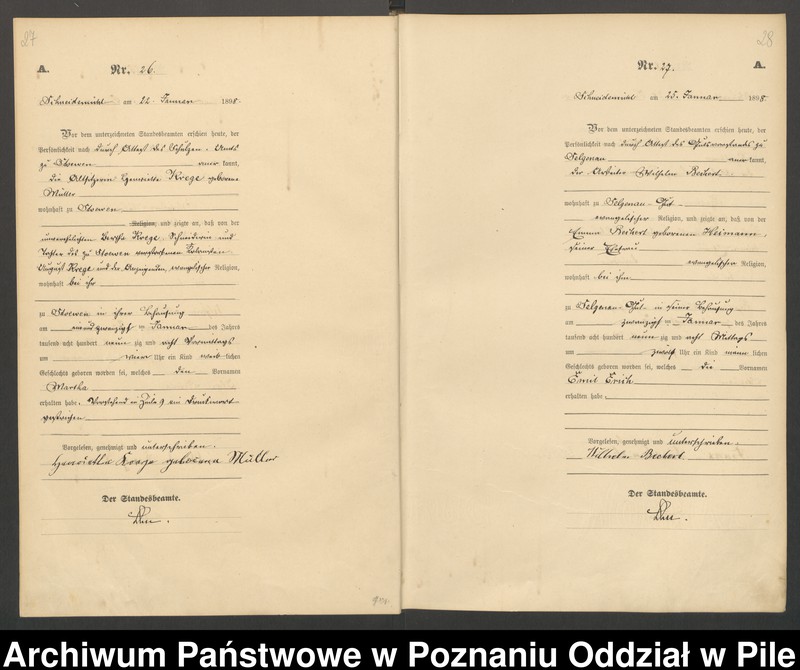 27
A.
Nr. 26.
Schneidemühl am 22. Januar 1898.
Vor dem unterzeichneten Standesbeamten erschien heute, der
Persönlichkeit nach durch Attest des Schulzen-Amts
zu Stoewen anerkannt,
die Altsitzerin Henriette Kroege geborene
Müller
wohnhaft zu Stoewen
Religion, und zeigte an, daß von der
unverehelichten Bertha Kroege, Schneiderin und
Tochter des zu Stoewen verstorbenen
August Kroege und der Anzeigenden, evangelischer Religion,
wohnhaft bei ihr
zu Stoewen in ihrer Behausung
am einundzwanzigsten Januar des Jahres
tausend acht hundert neunzig und acht Vormittags
um neun Uhr ein Kind weiblichen
Geschlechts geboren worden sei, welches den Vornamen
Martha
erhalten habe. Vorstehend in Zeile 9 ein Druckwort
gestrichen
Vorgelesen, genehmigt und unterschrieben.
Henriette Kroege geborene Müller
Der Standesbeamte.
28
Nr. 27.
A.
Schneidemühl am 25. Januar 1898.
Vor dem unterzeichneten Standesbeamten erschien heute, der
Persönlichkeit nach durch Attest des Gutsvorstands zu
Selgenau anerkannt,
der Arbeiter Wilhelm Beckert
wohnhaft zu Selgenau-Gut
evangelischer Religion, und zeigte an, daß von der
Emma Beckert geborenen Heimann,
seiner Ehefrau
evangelischer Religion,
wohnhaft bei ihm
zu Selgenau-Gut in seiner Behausung
am Januar des Jahres
tausend acht hundert neunzig und acht Mittags
um zwölf Uhr ein Kind männlichen
Geschlechts geboren worden sei, welches die Vornamen
Emil Erich
erhalten habe.
Vorgelesen, genehmigt und unterschrieben.
Wilhelm Beckert
Der Standesbeamte.
Archiwum Państwowe w Poznaniu Oddział w Pile